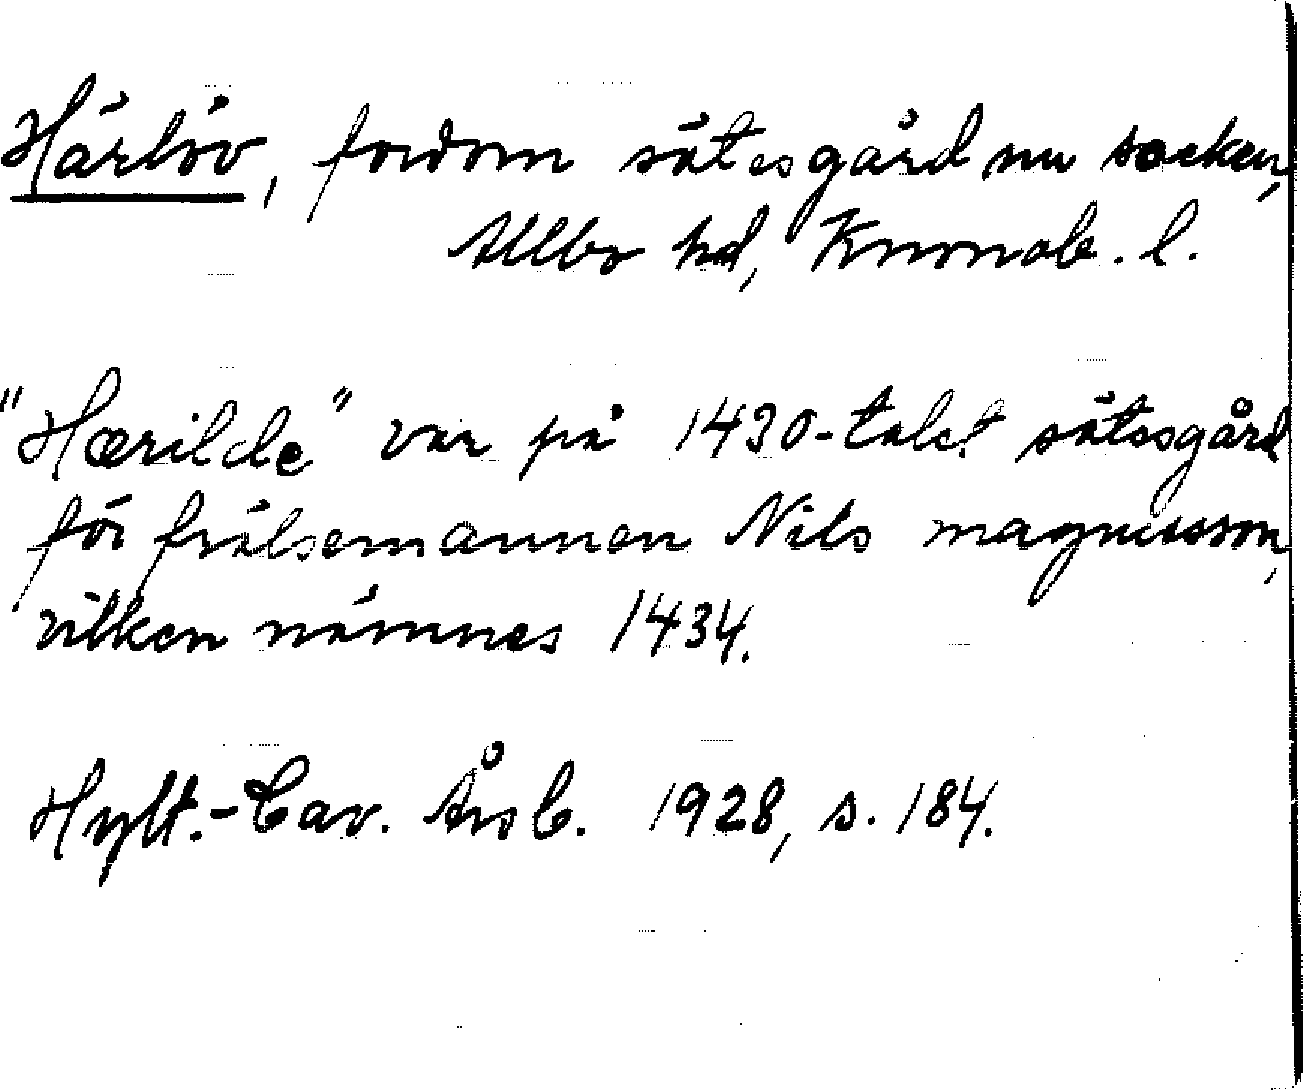 Härlöv, fordom sätesgård nu socken,
Allbo hd, Kronob. l.
"Hærilde" var på 1430-talet sätesgård
för frälsemannen Nils Magnusson,
vilken nämnes 1434.
Hylt.-Cav. Årsb. 1928, s. 184.